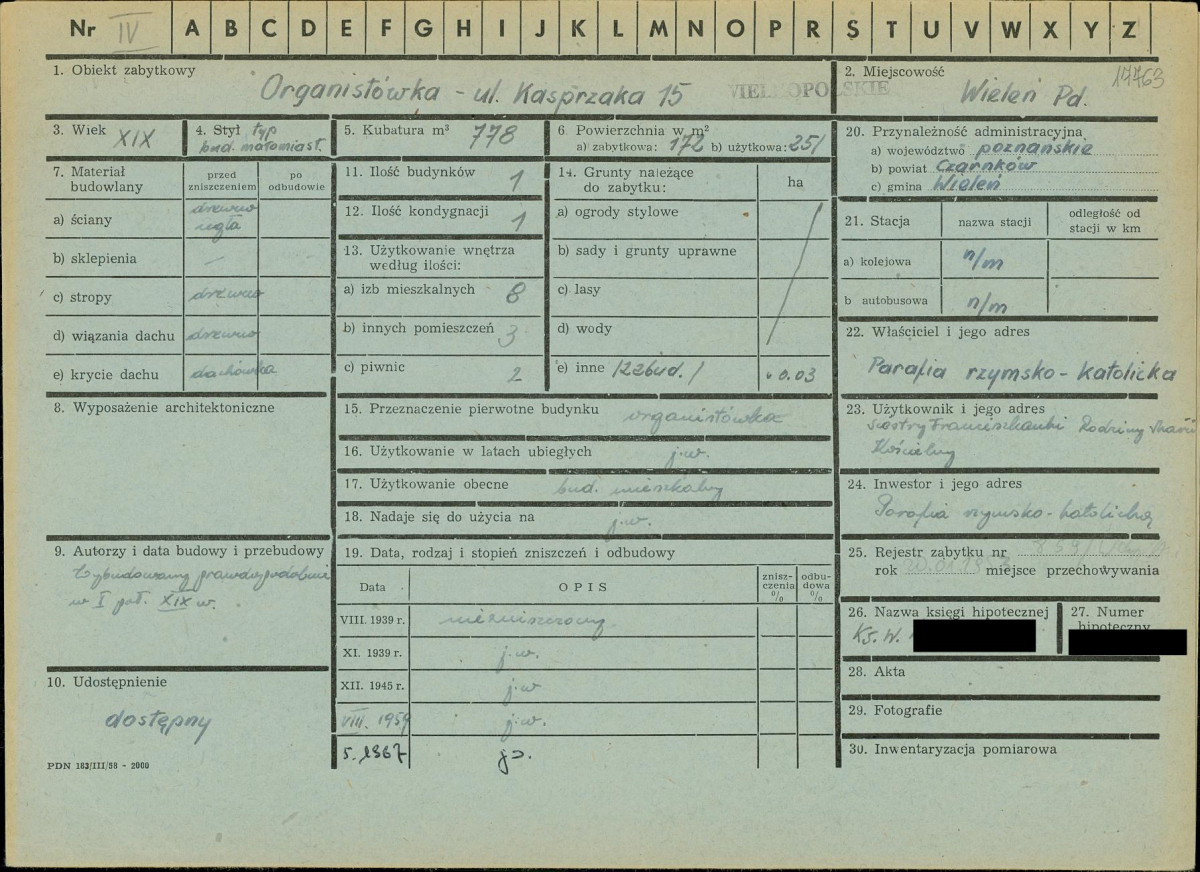 Nr IV A B C D E F G H I J K L M N O P R S T U V W X Y Z
1. Obiekt zabytkowy
Organistówka - ul. Kasprzaka 15
WIELKOPOLSKIE
2. Miejscowość
17763
Wieleń Pd.
3. Wiek
XIX
4. Styl typ
bud. małomiast.
5. Kubatura m³ 778
6 Powierzchnia w m²
a) zabytkowa: 172 b) użytkowa: 251
7. Materiał
budowlany
przed
zniszczeniem
po
odbudowie
a) ściany
drewno
cegła
b) sklepienia —
c) stropy drewno
d) wiązania dachu drewno
e) krycie dachu dachówka
8. Wyposażenie architektoniczne
9. Autorzy i data budowy i przebudowy
Wybudowany prawdopodobnie
w I poł. XIX w.
10. Udostępnienie
dostępny
PDN 183/III/58 - 2000
11. Ilość budynków 1
12. Ilość kondygnacji 1
13. Użytkowanie wnętrza
według ilości:
a) izb mieszkalnych 8
b) innych pomieszczeń 3
c) piwnic 2
14. Grunty należące
do zabytku:
ha
a) ogrody stylowe
b) sady i grunty uprawne
c) lasy
d) wody
e) inne /zabud./ 0.03
15. Przeznaczenie pierwotne budynku organistówka
16. Użytkowanie w latach ubiegłych j.w.
17. Użytkowanie obecne bud. mieszkalny
18. Nadaje się do użycia na j.w.
19. Data, rodzaj i stopień zniszczeń i odbudowy
Data
OPIS
znisz-
czenia
%
odbu-
dowa
%
VIII. 1939 r. niezniszczony
XI. 1939 r. j.w.
XII. 1945 r. j.w
VIII. 1959 j.w.
5. 1967
20. Przynależność administracyjna
a) województwo poznańskie
b) powiat Czarnków
c) gmina Wieleń
21. Stacja
nazwa stacji
odległość od
stacji w km
a) kolejowa n/m
b autobusowa n/m
22. Właściciel i jego adres
Parafia rzymsko-katolicka
23. Użytkownik i jego adres
Siostry Franciszkanki Rodziny Marii
Kościelny
24. Inwestor i jego adres
Parafia rzymsko-katolicka
25. Rejestr zabytku nr
rok miejsce przechowywania
26. Nazwa księgi hipotecznej
Ks. W.
27. Numer
hipoteczny
28. Akta
29. Fotografie
30. Inwentaryzacja pomiarowa